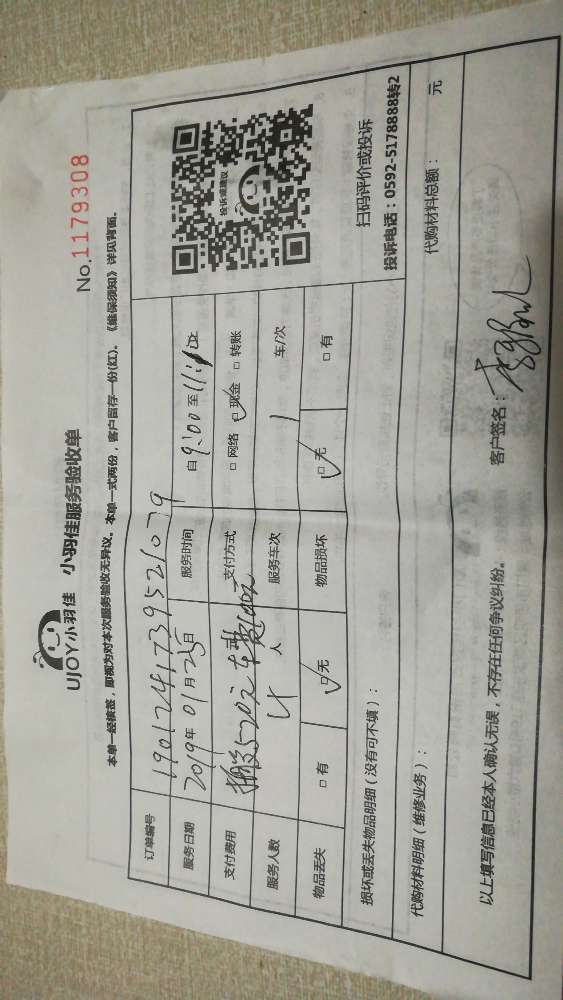 UJOY小羽佳 小羽佳服务验收单
No.1179308
本单一经核签，即视为对本次服务验收无异议。本单一式两份，客户留存一份(红)。《维保须知》详见背面。
订单编号 1901241739521079
服务日期 2019年01月25日 服务时间 自9:00至11:
支付费用 搬家520元 车费100元 支付方式 □网络 □现金 □转账
服务人数 4人 服务车次 1 车/次
物品丢失 □有 □无 物品损坏 □无 □有
投诉或建议
扫码评价或投诉
投诉电话：0592-5178888转2
损坏或丢失物品明细（没有可不填）：
代购材料明细（维修业务）： 代购材料总额： 元
以上填写信息已经本人确认无误，不存在任何争议纠纷。 客户签名：